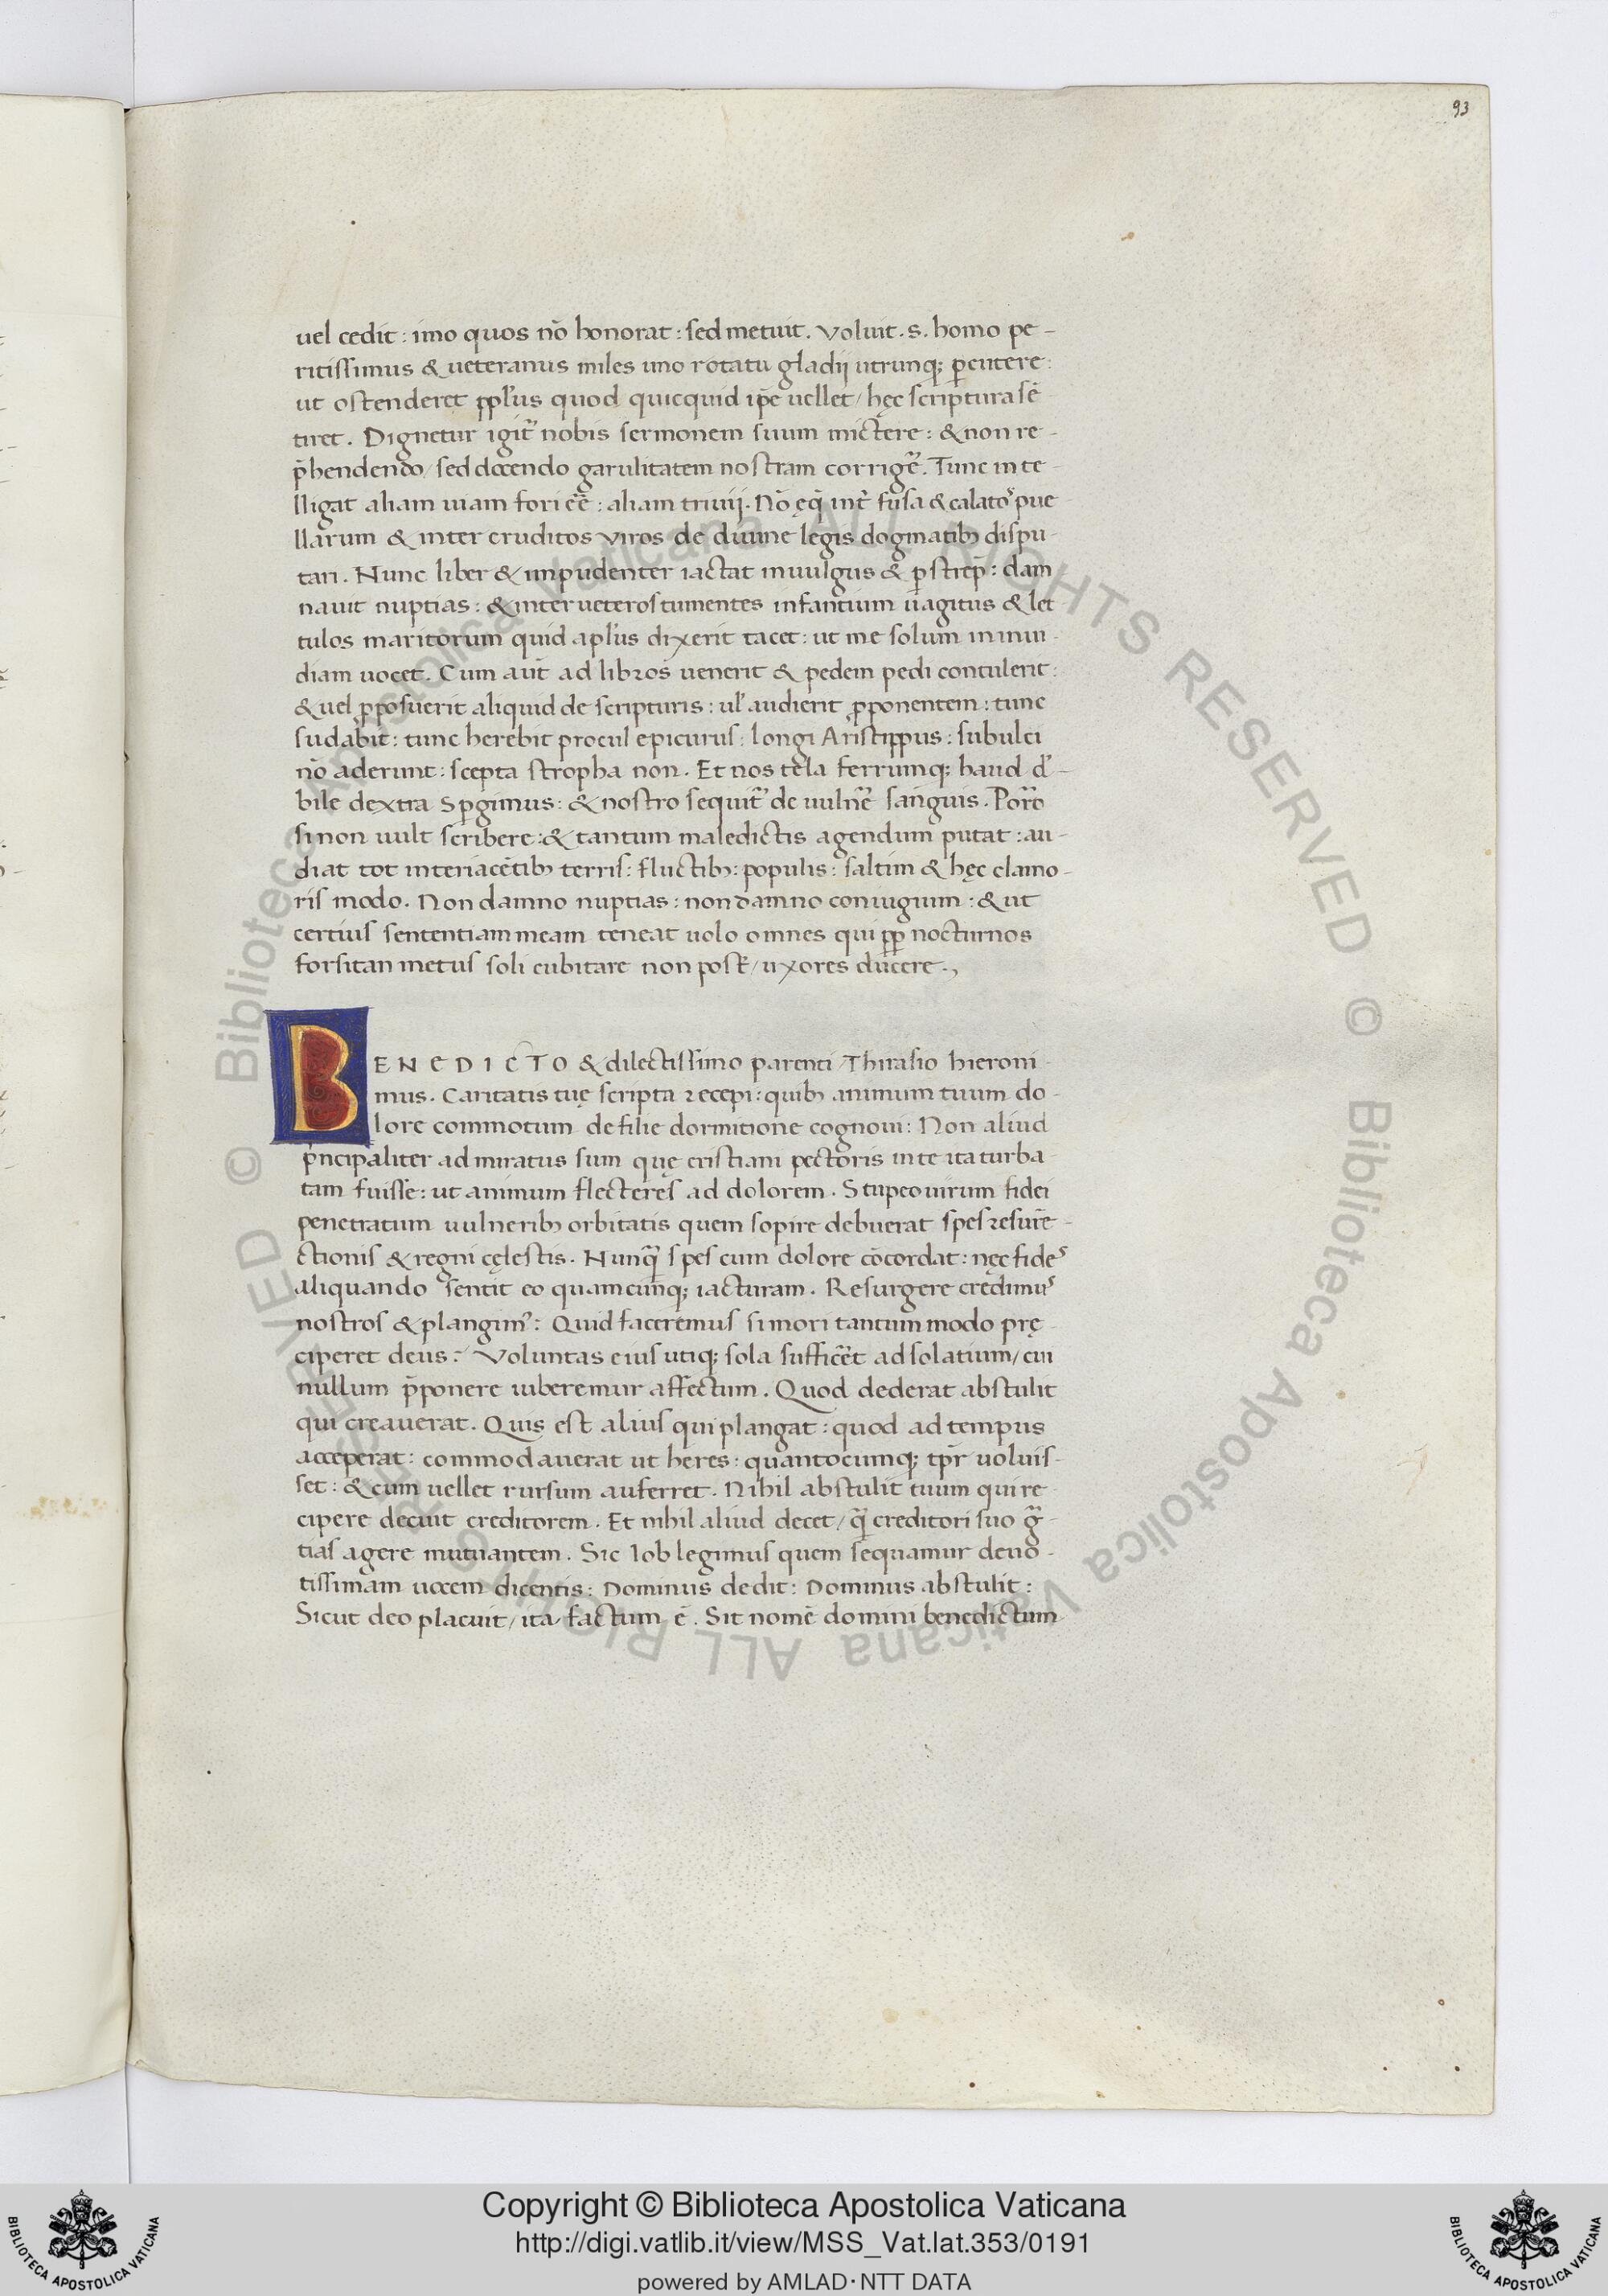 93
uel cedit: imo quos nō honorat: sed metuit. Voluit .s. homo pe-
ritissimus & ueteranus miles uno rotatu gladii utrunq; ꝑcutere:
ut ostenderet ꝓpl'us quod quicquid ip̄e uellet / hęc scriptura sē
tiret. Dignetur igit᷑ nobis sermonem suum mictere: & non re-
p̄hendendo / sed docendo garulitatem nostram corrigē. Tunc inte-
lligat aliam uiam fori eē̄: aliam triuii. Nō ęq̄ int̄ fusa & calatoˢ pue
llarum & inter eruditos viros de diuine legis dogmatibꝫ dispu-
tari. Nunc liber & impudenter iactat in uulgus & ꝑstrep̄: dam
nauit nuptias: & inter ueteros tumentes infantium uagitus & let
tulos maritorum quid apl'us dixerit tacet: ut me solum in inui-
diam uocet. Cum aūt ad libros uenerit & pedem pedi contulerit:
& uel ꝓposuerit aliquid de scripturis: ul' audierit ꝓponentem: tunc
sudabit: tunc herebit procul epicurus: longi Aristippus: subulci
nō aderunt: scepta stropha non. Et nos tela ferrumq; haud d'-
bile dextra Spgimus: & nostro sequit᷑ de uulnē sanguis. Porro
si non uult scribere: & tantum maledictis agendum putat: au-
diat tot interiacētibꝫ terris: fluctibꝫ: populis: saltim & hęc clamo-
ris modo. Non damno nuptias: non damno coniugium: & ut
certius sententiam meam teneat uolo omnes qui ꝓp nocturnos
forsitan metus soli cubitare non posŧ / uxores ducere.,
BENEDICTO & dilectissimo parenti / Thirasio hieroni-
mus. Caritatis tuę scripta recepi: quibꝫ animum tuum do-
lore commotum de filie dormitione cognoui: Non aliud
p̄ncipaliter admiratus sum quę cristiani pectoris in te ita turba-
tam fuisse: ut animum flecteres ad dolorem. Stupeo uirum fidei
penetratum uulneribꝫ orbitatis quem sopire debuerat spes resurē-
ctionis & regni cęlestis. Nunq̄ spes cum dolore cōcordat: nęc fideˢ
aliquando sentit eo quamcunq; iacturam. Resurgere credimuˢ
nostros & plangim⁹: Quid faceremus si mori tantum modo prę
ciperet deus: Voluntas eius utiq; sola sufficēt ad solatium / cui
nullum p̄ponere iuberemur affectum. Quod dederat abstulit
qui creauerat. Quis est alius qui plangat: quod ad tempus
acceperat: commodauerat ut heres: quantocumq; tp̄r uoluis-
set: & cum uellet rursum auferret. Nihil abstulit tuum qui re-
cipere decuit creditorem. Et nihil aliud decet / q̄ creditori suo g̃-
tias agere mutuantem. Sic Iob legimus quem sequamur deuo-
tissimam uocem dicentis: Dominus dedit: Dominus abstulit:
Sicut deo placuit / ita factum ē. Sit nomē domini benedictum
© Biblioteca Apostolica Vaticana ALL RIGHTS RESERVED
© Biblioteca Apostolica Vaticana ALL RIGHTS RESERVED
Copyright © Biblioteca Apostolica Vaticana
http://digi.vatlib.it/view/MSS_Vat.lat.353/0191
powered by AMLAD·NTT DATA
BIBLIOTECA APOSTOLICA VATICANA
BIBLIOTECA APOSTOLICA VATICANA